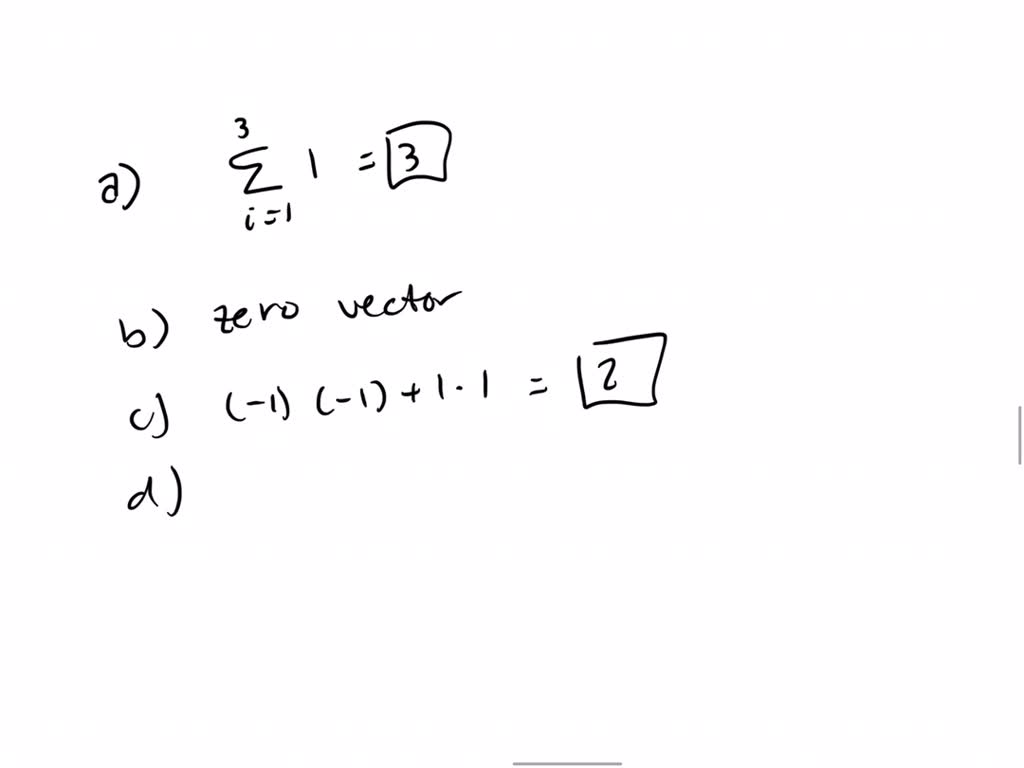 a) 3∑i=1 1 = 3
b) zero vector
c) (-1) (-1) + 1 · 1 = 2
d)